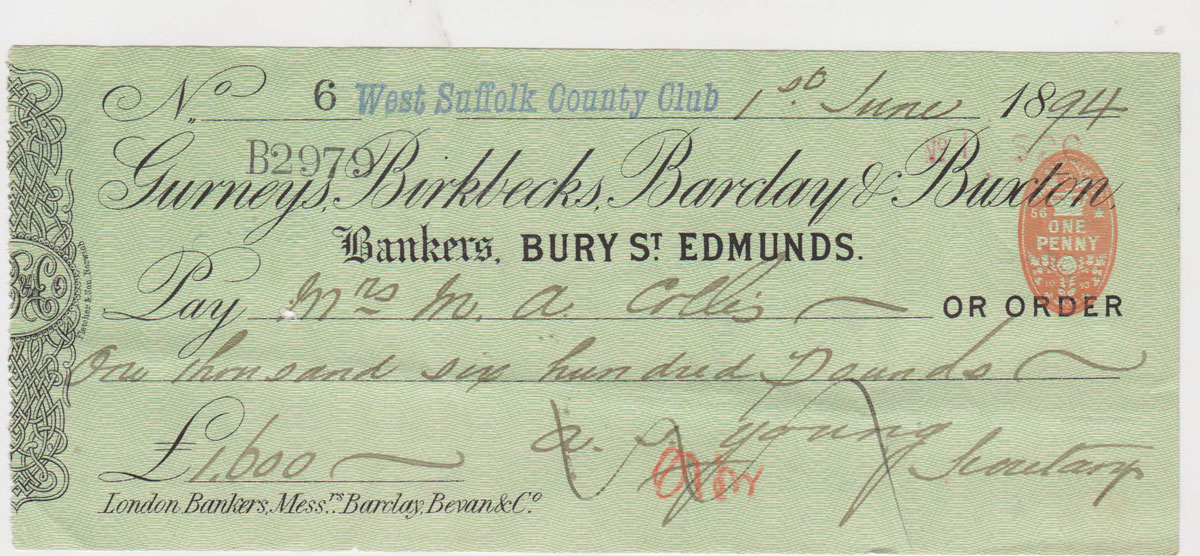 No. 6 West Suffolk County Club 1st June 1894
B2979
Gurneys, Birkbecks, Barclay & Buxton,
Bankers, BURY ST. EDMUNDS.
ONE PENNY
Pay Mrs M. A. Collis OR ORDER
One thousand six hundred Pounds
£1,600
A. Young Secretary
London Bankers, Messrs. Barclay, Bevan & Co.
Fletcher & Son, Norwich